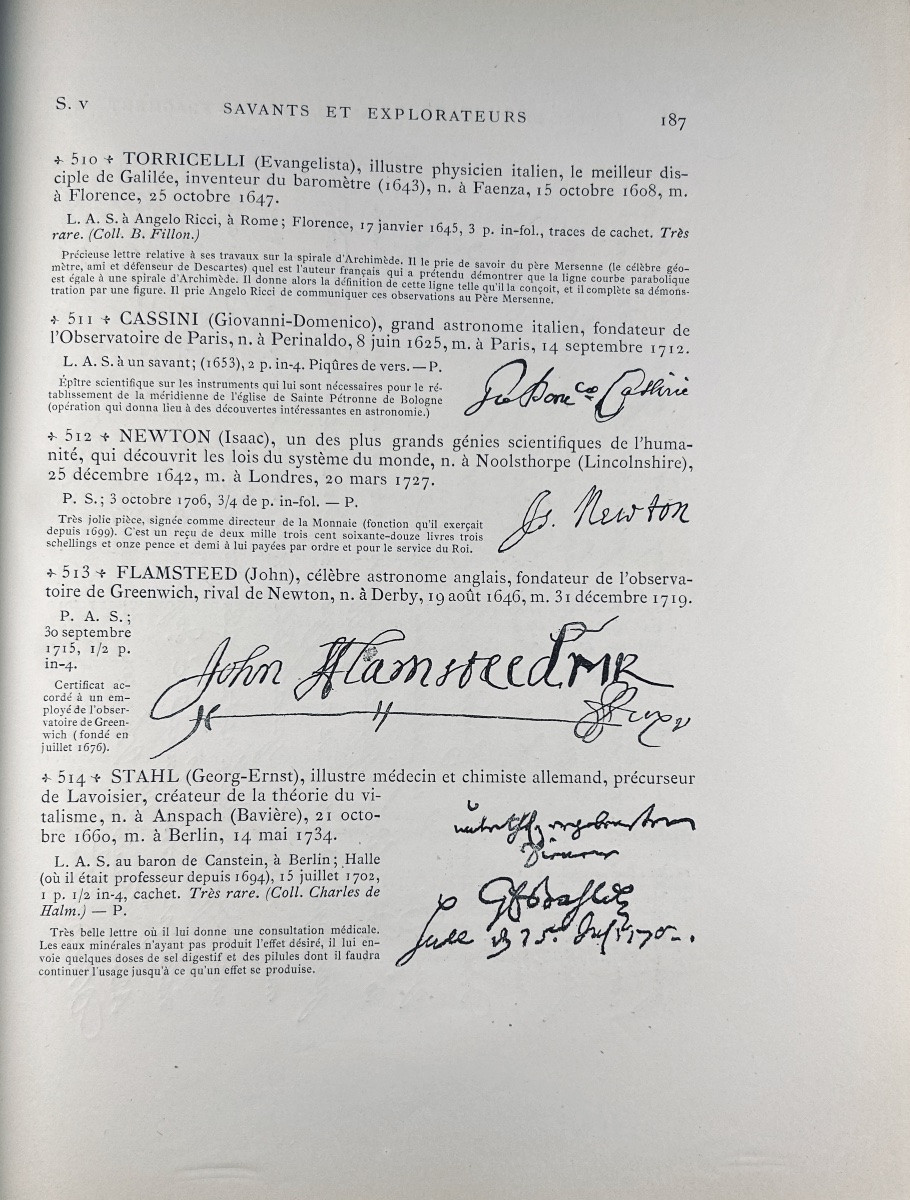 S. V SAVANTS ET EXPLORATEURS 187
✢ 510 ✢ TORRICELLI (Evangelista), illustre physicien italien, le meilleur dis-
ciple de Galilée, inventeur du baromètre (1643), n. à Faenza, 15 octobre 1608, m.
à Florence, 25 octobre 1647.
L. A. S. à Angelo Ricci, à Rome; Florence, 17 janvier 1645, 3 p. in-fol., traces de cachet. Très
rare. (Coll. B. Fillon.)
Précieuse lettre relative à ses travaux sur la spirale d'Archimède. Il le prie de savoir du père Mersenne (le célèbre géo-
mètre, ami et défenseur de Descartes) quel est l'auteur français qui a prétendu démontrer que la ligne courbe parabolique
est égale à une spirale d'Archimède. Il donne alors la définition de cette ligne telle qu'il la conçoit, et il complète sa démons-
tration par une figure. Il prie Angelo Ricci de communiquer ces observations au Père Mersenne.
✢ 511 ✢ CASSINI (Giovanni-Domenico), grand astronome italien, fondateur de
l'Observatoire de Paris, n. à Perinaldo, 8 juin 1625, m. à Paris, 14 septembre 1712.
L. A. S. à un savant; (1653), 2 p. in-4. Piqûres de vers. — P.
Épître scientifique sur les instruments qui lui sont nécessaires pour le ré-
tablissement de la méridienne de l'église de Sainte Pétronne de Bologne
(opération qui donna lieu à des découvertes intéressantes en astronomie.)
Gio Domco Cassini
✢ 512 ✢ NEWTON (Isaac), un des plus grands génies scientifiques de l'huma-
nité, qui découvrit les lois du système du monde, n. à Noolsthorpe (Lincolnshire),
25 décembre 1642, m. à Londres, 20 mars 1727.
P. S.; 3 octobre 1706, 3/4 de p. in-fol. — P.
Très jolie pièce, signée comme directeur de la Monnaie (fonction qu'il exerçait
depuis 1699). C'est un reçu de deux mille trois cent soixante-douze livres trois
schellings et onze pence et demi à lui payées par ordre et pour le service du Roi.
Is. Newton
✢ 513 ✢ FLAMSTEED (John), célèbre astronome anglais, fondateur de l'observa-
toire de Greenwich, rival de Newton, n. à Derby, 19 août 1646, m. 31 décembre 1719.
P. A. S.;
30 septembre
1715, 1/2 p.
in-4.
Certificat ac-
cordé à un em-
ployé de l'obser-
vatoire de Green-
wich (fondé en
juillet 1676).
John Flamsteed MR
✢ 514 ✢ STAHL (Georg-Ernst), illustre médecin et chimiste allemand, précurseur
de Lavoisier, créateur de la théorie du vi-
talisme, n. à Anspach (Bavière), 21 octo-
bre 1660, m. à Berlin, 14 mai 1734.
L. A. S. au baron de Canstein, à Berlin; Halle
(où il était professeur depuis 1694), 15 juillet 1702,
1 p. 1/2 in-4, cachet. Très rare. (Coll. Charles de
Halm.) — P.
Très belle lettre où il lui donne une consultation médicale.
Les eaux minérales n'ayant pas produit l'effet désiré, il lui en-
voie quelques doses de sel digestif et des pilules dont il faudra
continuer l'usage jusqu'à ce qu'un effet se produise.